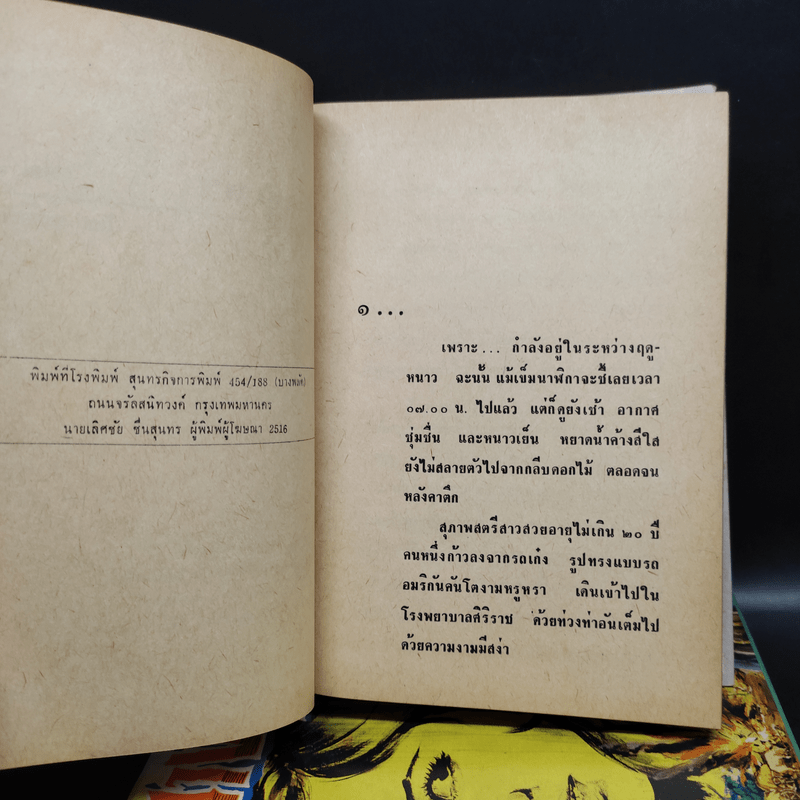 พิมพ์ที่โรงพิมพ์ สุนทรกิจการพิมพ์ 454/188 (บางพลัด)
ถนนจรัลสนิทวงค์ กรุงเทพมหานคร
นายเลิศชัย ชื่นสุนทร ผู้พิมพ์ผู้โฆษณา 2516
๑ ...
เพราะ ... กำลังอยู่ในระหว่างฤดู-
หนาว ฉะนั้น แม้เข็มนาฬิกาจะชี้เลยเวลา
๐๗.๐๐ น. ไปแล้ว แต่ก็ดูยังเช้า อากาศ
ชุ่มชื่น และหนาวเย็น หยาดน้ำค้างสีใส
ยังไม่สลายตัวไปจากกลีบดอกไม้ ตลอดจน
หลังคาตึก
สุภาพสตรีสาวสวยอายุไม่เกิน ๒๐ ปี
คนหนึ่งก้าวลงจากรถเก๋ง รูปทรงแบบรถ
อมริกันคันโตงามหรูหรา เดินเข้าไปใน
โรงพยาบาลศิริราช ด้วยท่วงท่าอันเต็มไป
ด้วยความงามมีสง่า